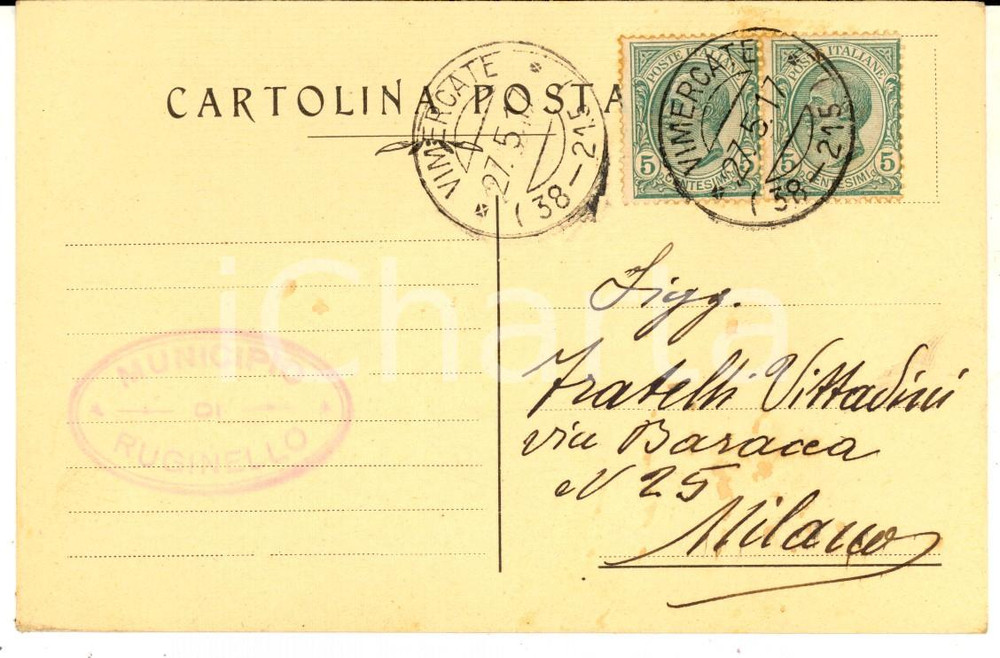 CARTOLINA POSTA
VIMERCATE
27.5.17
(38-215)
POSTE ITALIANE
5 CENTESIMI 5
VIMERCATE
27.5.17
(38-215)
POSTE ITALIANE
5 CENTESIMI 5
iCharta
Sigg.
Fratelli Vittadini
via Baracca
N 25
Milano
MUNICIPIO
DI
RUGINELLO